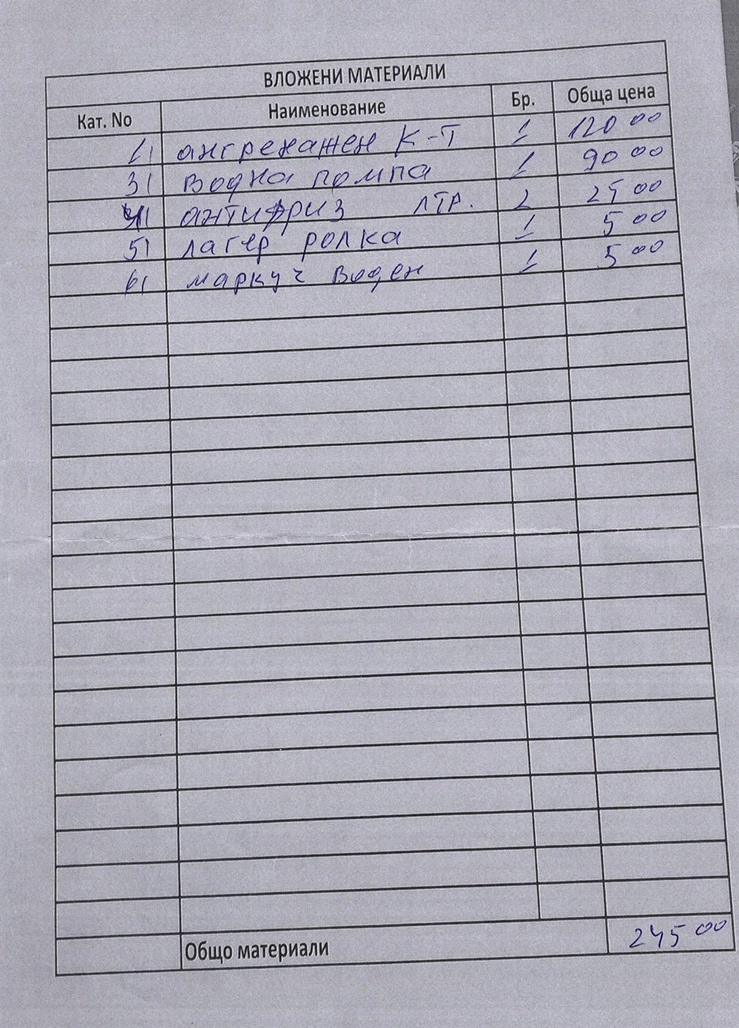 ВЛОЖЕНИ МАТЕРИАЛИ
Кат. No Наименование Бр. Обща цена
1/ ангренажен К-Т 1 120 00
3/ водна помпа 1 90 00
4/ антифриз лтр. 2 25 00
5/ лагер ролка 1 5 00
6/ маркуч воден 1 5 00
Общо материали 245 00